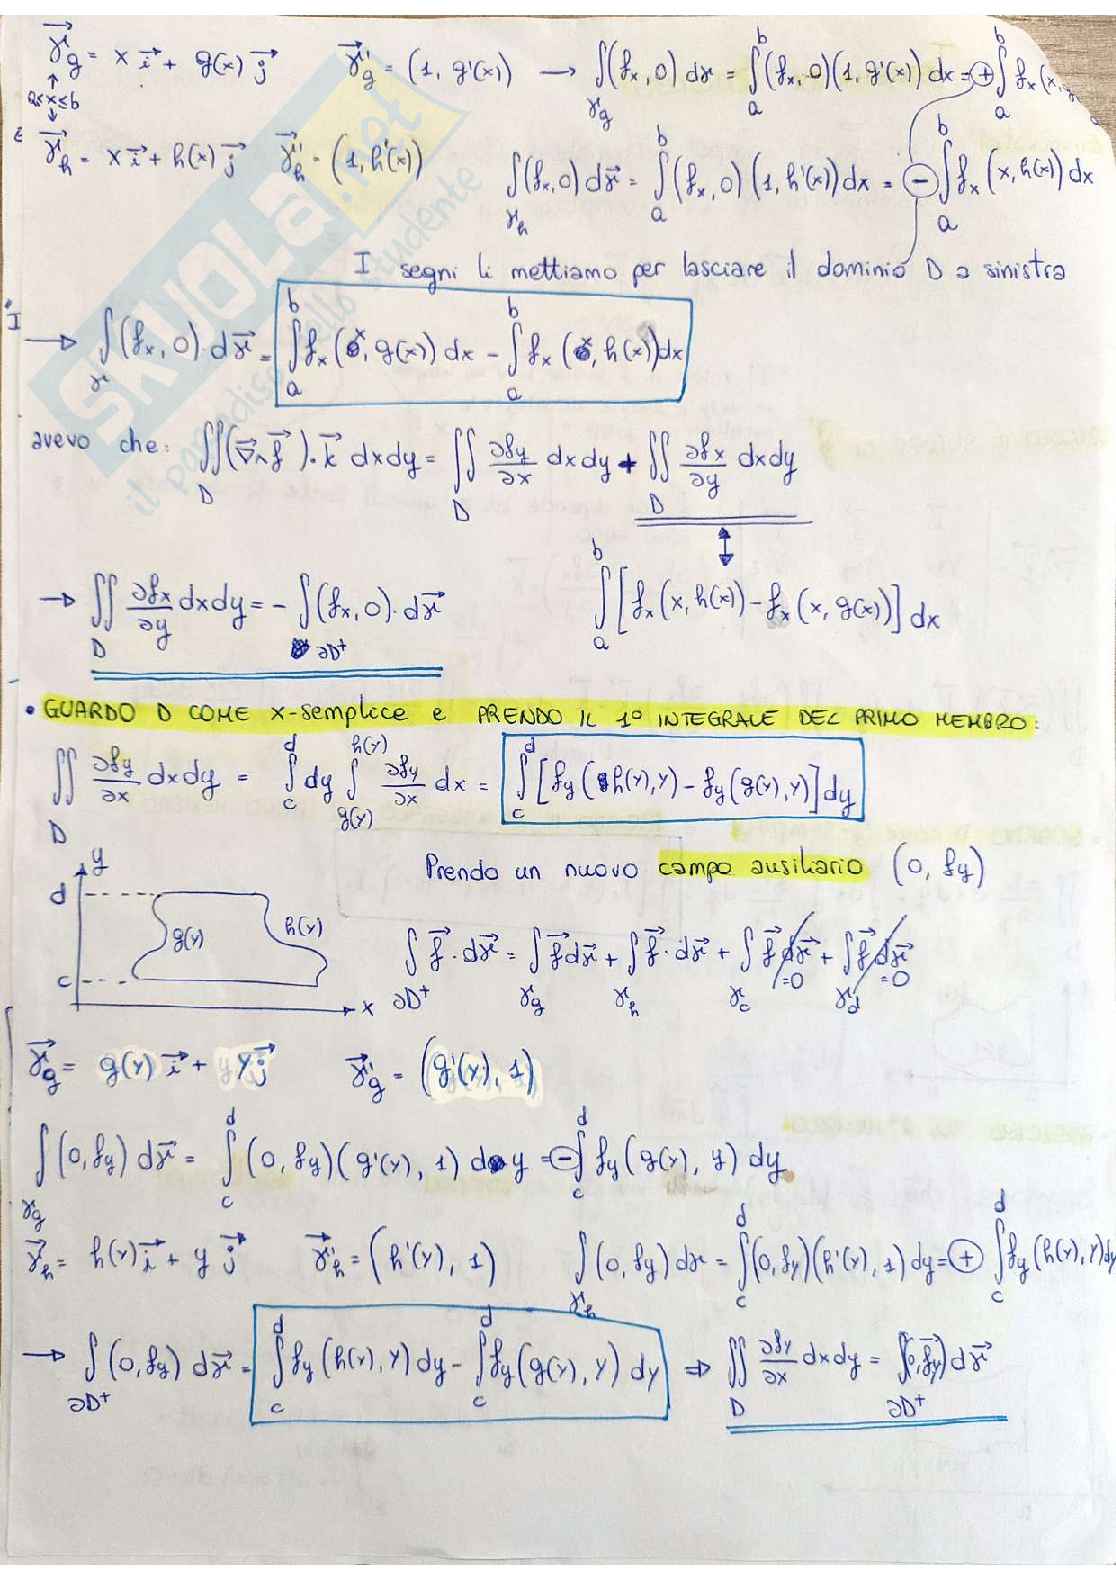 γ⃗g = x i⃗ + g(x) j⃗   γ⃗'g = (1, g'(x)) → ∫γg (fx, 0) dγ = ∫_a^b (fx, 0)(1, g'(x)) dx = ⊕ ∫_a^b fx(x,
a≤x≤b
γ⃗h = x i⃗ + h(x) j⃗   γ⃗'h = (1, h'(x))   ∫γh (fx, 0) dγ⃗ = ∫_a^b (fx, 0)(1, h'(x)) dx = ⊖ ∫_a^b fx(x, h(x)) dx
I segni li mettiamo per lasciare il dominio D a sinistra
→ ∫γ (fx, 0)·dγ⃗ = ∫_a^b fx(x, g(x)) dx - ∫_a^b fx(x, h(x)) dx
avevo che: ∬D (∇⃗∧f⃗)·k⃗ dxdy = ∬D ∂fy/∂x dxdy + ∬D ∂fx/∂y dxdy
∫_a^b [fx(x, h(x)) - fx(x, g(x))] dx
→ ∬D ∂fx/∂y dxdy = - ∫∂D⁺ (fx, 0)·dγ⃗
• GUARDO D COME x-semplice e PRENDO IL 1° INTEGRALE DEL PRIMO MEMBRO:
∬D ∂fy/∂x dxdy = ∫_c^d dy ∫_g(y)^h(y) ∂fy/∂x dx = ∫_c^d [fy(h(y), y) - fy(g(y), y)] dy
Prendo un nuovo campo ausiliario (0, fy)
y
d
g(y) h(y)
c
x
∫∂D⁺ f⃗·dγ⃗ = ∫γg f⃗dγ⃗ + ∫γh f⃗·dγ⃗ + ∫γc f⃗dγ⃗ =0 + ∫γd f⃗dγ⃗ =0
γ⃗g = g(y) i⃗ + y j⃗   γ⃗'g = (g'(y), 1)
∫γg (0, fy) dγ⃗ = ∫_c^d (0, fy)(g'(y), 1) dy = ⊖ ∫_c^d fy(g(y), y) dy
γ⃗h = h(y) i⃗ + y j⃗   γ⃗'h = (h'(y), 1)   ∫γh (0, fy) dγ = ∫_c^d (0, fy)(h'(y), 1) dy = ⊕ ∫_c^d fy(h(y), y) dy
→ ∫∂D⁺ (0, fy) dγ⃗ = ∫_c^d fy(h(y), y) dy - ∫_c^d fy(g(y), y) dy ⇒ ∬D ∂fy/∂x dxdy = ∫∂D⁺ (0, fy) dγ⃗
SKUOLA.net
il paradiso dello studente